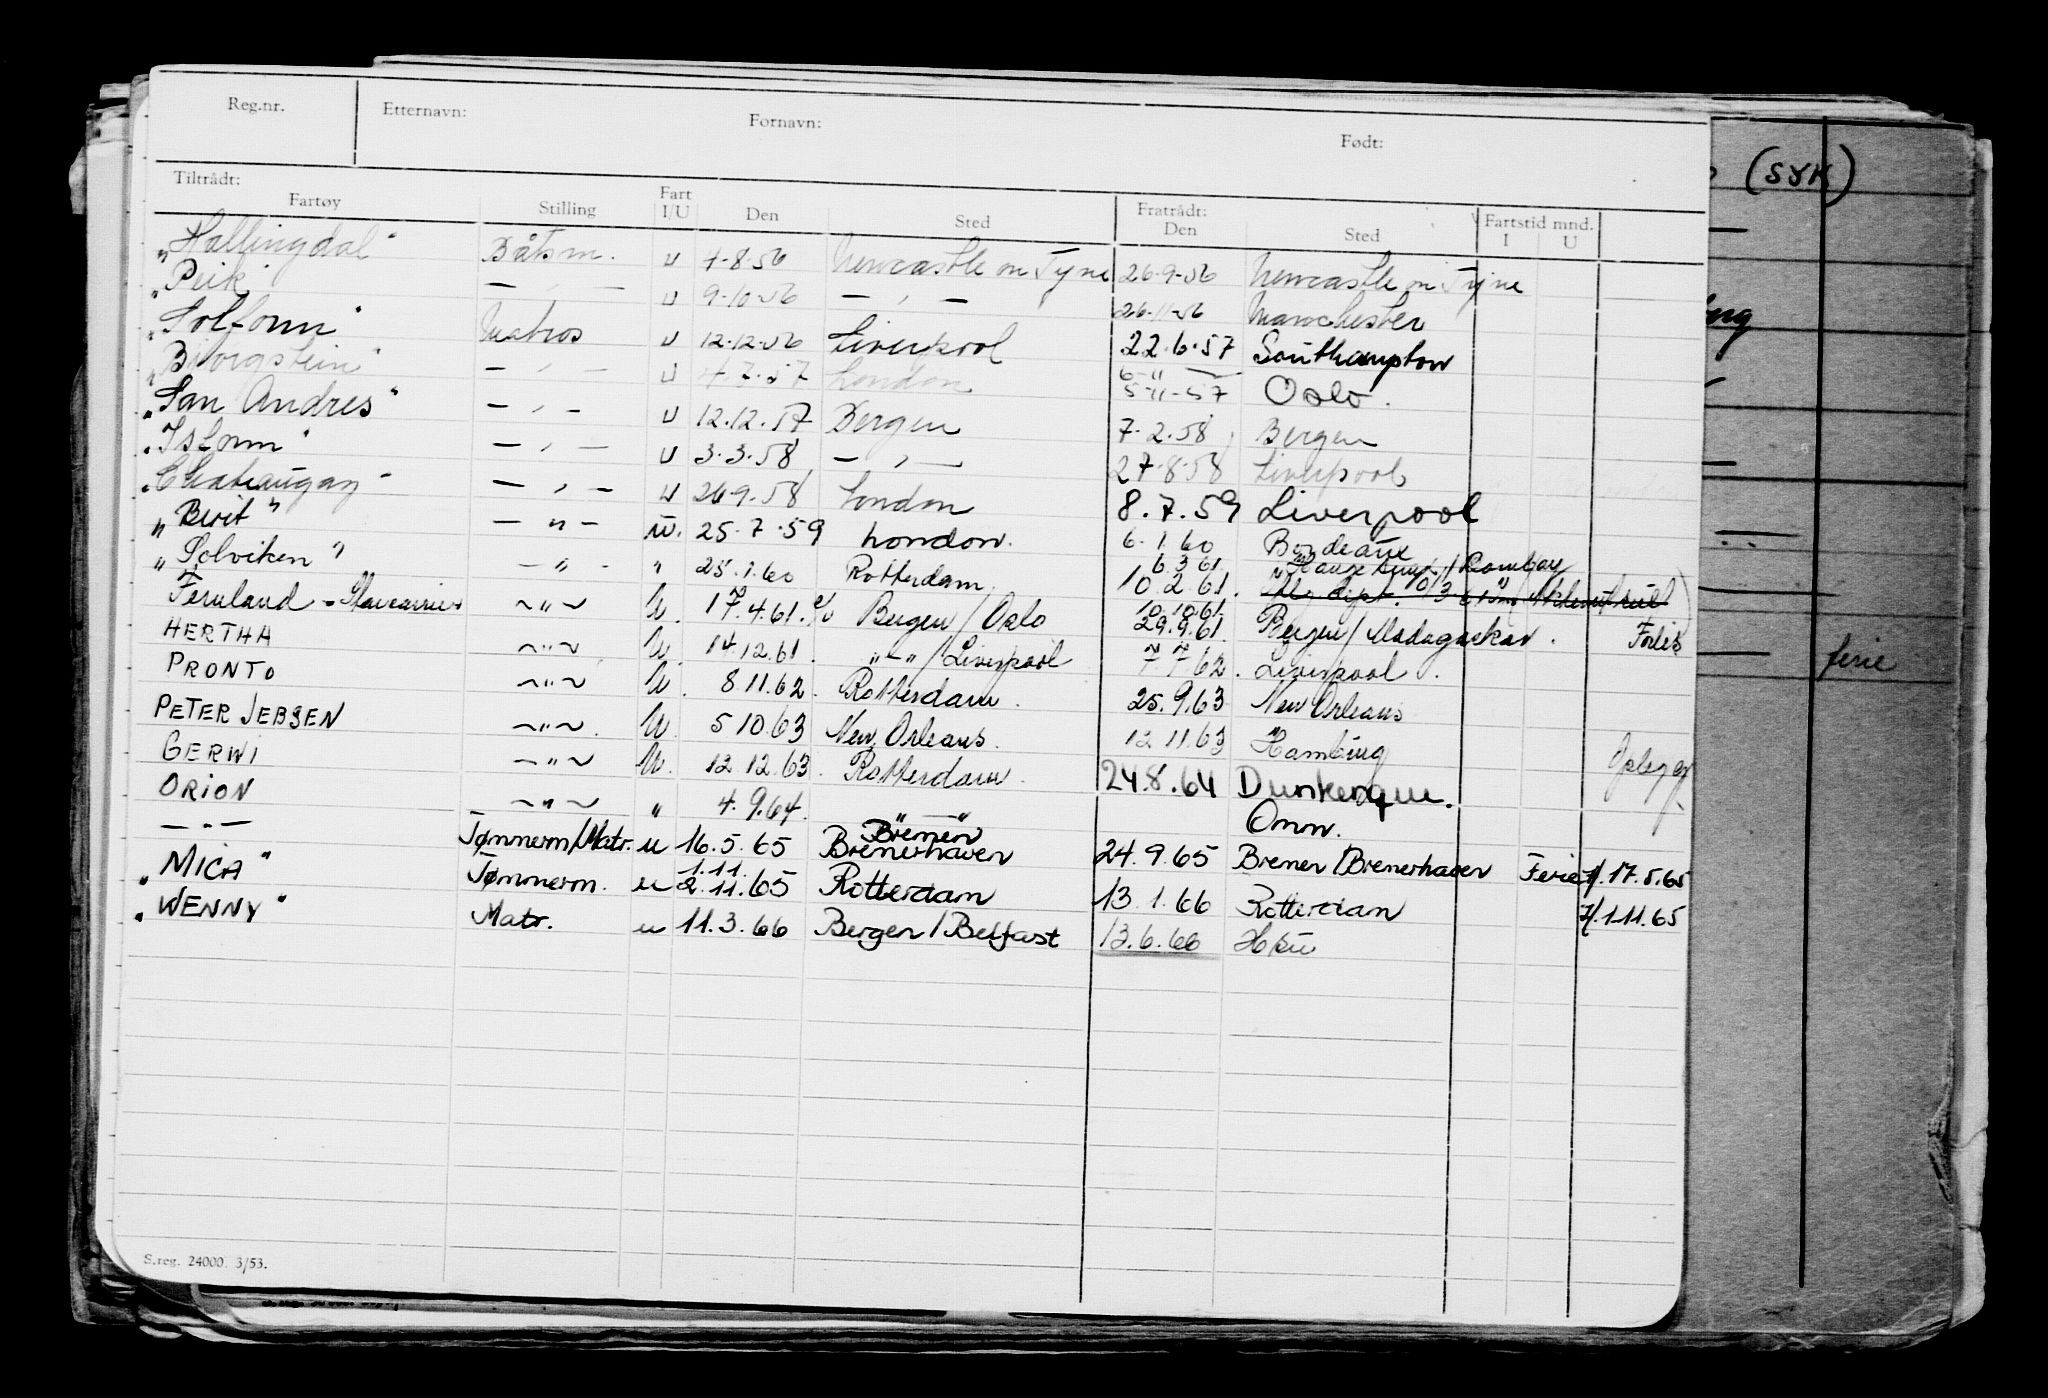 Reg.nr. Etternavn: Fornavn: Født:
Tiltrådt: Fratrådt: Fartstid mnd.
Fartøy Stilling Fart I/U Den Sted Den Sted I U
"Hallingdal" Båtsm. U 7-8-56 Newcastle on Tyne 26-9-56 Newcastle on Tyne
"Peik" — " — U 9-10-56 — " — 26-11-56 Manchester
"Solfonn" Matros U 12-12-56 Liverpool 22.6.57 Southampton
"Bjørgstein" — " — U 4.7.57 London 5-11-57 Oslo.
"San Andres" — " — U 12.12.57 Bergen 7.2.58 Bergen
"Isfonn" — " — U 3.3.58 — " — 27-8-58 Liverpool
"Chateaugay" — " — U 26-9-58 London 8.7.59 Liverpool
"Berit" — " — u. 25.7.59 London. 6.1.60 Bordeaux
"Solviken" — " — " 25.1.60 Rotterdam. 10 2 61.
6 3 61 / Bombay
Fernland - ~ " ~ U. 17.4.61. Bergen / Oslo 29.9.61 Bergen / Madagaskar. Forlis
10.10.61.
HERTHA ~ " ~ U. 14.12.61. " - " / Liverpool 7 7 62. Liverpool.
PRONTO ~ " ~ U. 8 11.62. Rotterdam. 25.9.63 New Orleans
PETER JEBSEN ~ " ~. U. 5 10.63 New Orleans. 12 11.63 Hamburg
GERWI ~ " ~ U. 12 12.63. Rotterdam. 24.8.64 Dunkerque.
ORION ~ " ~ " 4.9.64. " — " Omm.
— " — Tømmerm/Matr. u 16.5.65 Bremen Bremerhaven 24.9.65 Bremen/Bremerhaven Ferie 17.5.65
"MICA" Tømmerm. u 1.11. 2.11.65 Rotterdam 13.1.66 Rotterdam 1.11.65
"WENNY" Matr. u 11.3.66 Bergen/Belfast 13.6.66
S.reg. 24000 3/53.
(SYK)
ferie